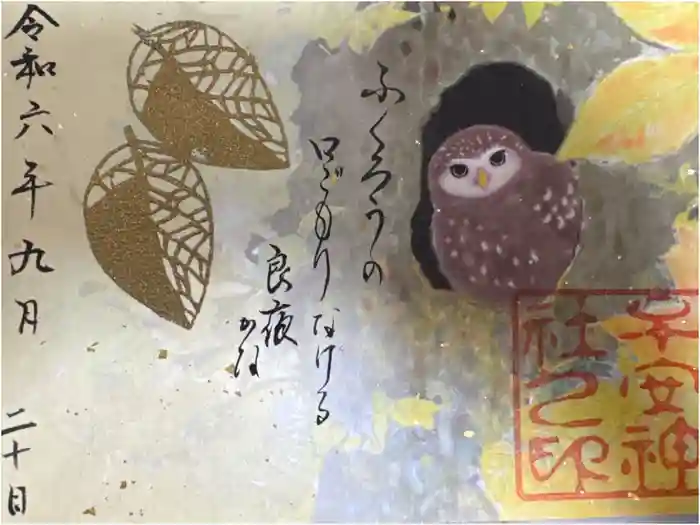 ふくろうの
口ごもりなける
良夜かな
令和六年九月二十日
子安神
社之印